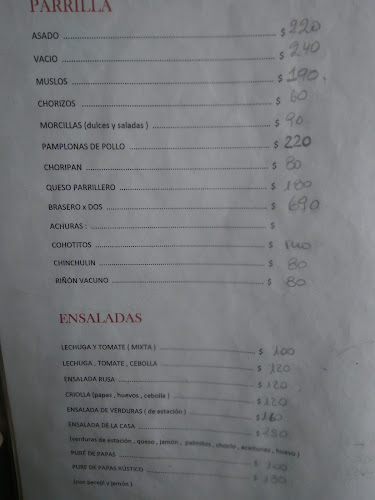 PARRILLA
ASADO $ 220
VACIO $ 240
MUSLOS $ 190
CHORIZOS $ 60
MORCILLAS (dulces y saladas ) $ 90
PAMPLONAS DE POLLO $ 220
CHORIPAN $ 80
QUESO PARRILLERO $ 180
BRASERO x DOS $ 690
ACHURAS : $
COHOTITOS $
CHINCHULIN $ 80
RIÑÓN VACUNO $ 80
ENSALADAS
LECHUGA Y TOMATE ( MIXTA ) $ 100
LECHUGA , TOMATE , CEBOLLA $ 120
ENSALADA RUSA $ 120
CRIOLLA (papas , huevos , cebolla ) $ 120
ENSALADA DE VERDURAS ( de estación ) $ 160
ENSALADA DE LA CASA $
(verduras de estación , queso , jamón , palmitos , choclo , aceitunas , huevo )
PURÉ DE PAPAS $ 100
PURE DE PAPAS RÚSTICO $ 130
(con perejil y jamón )